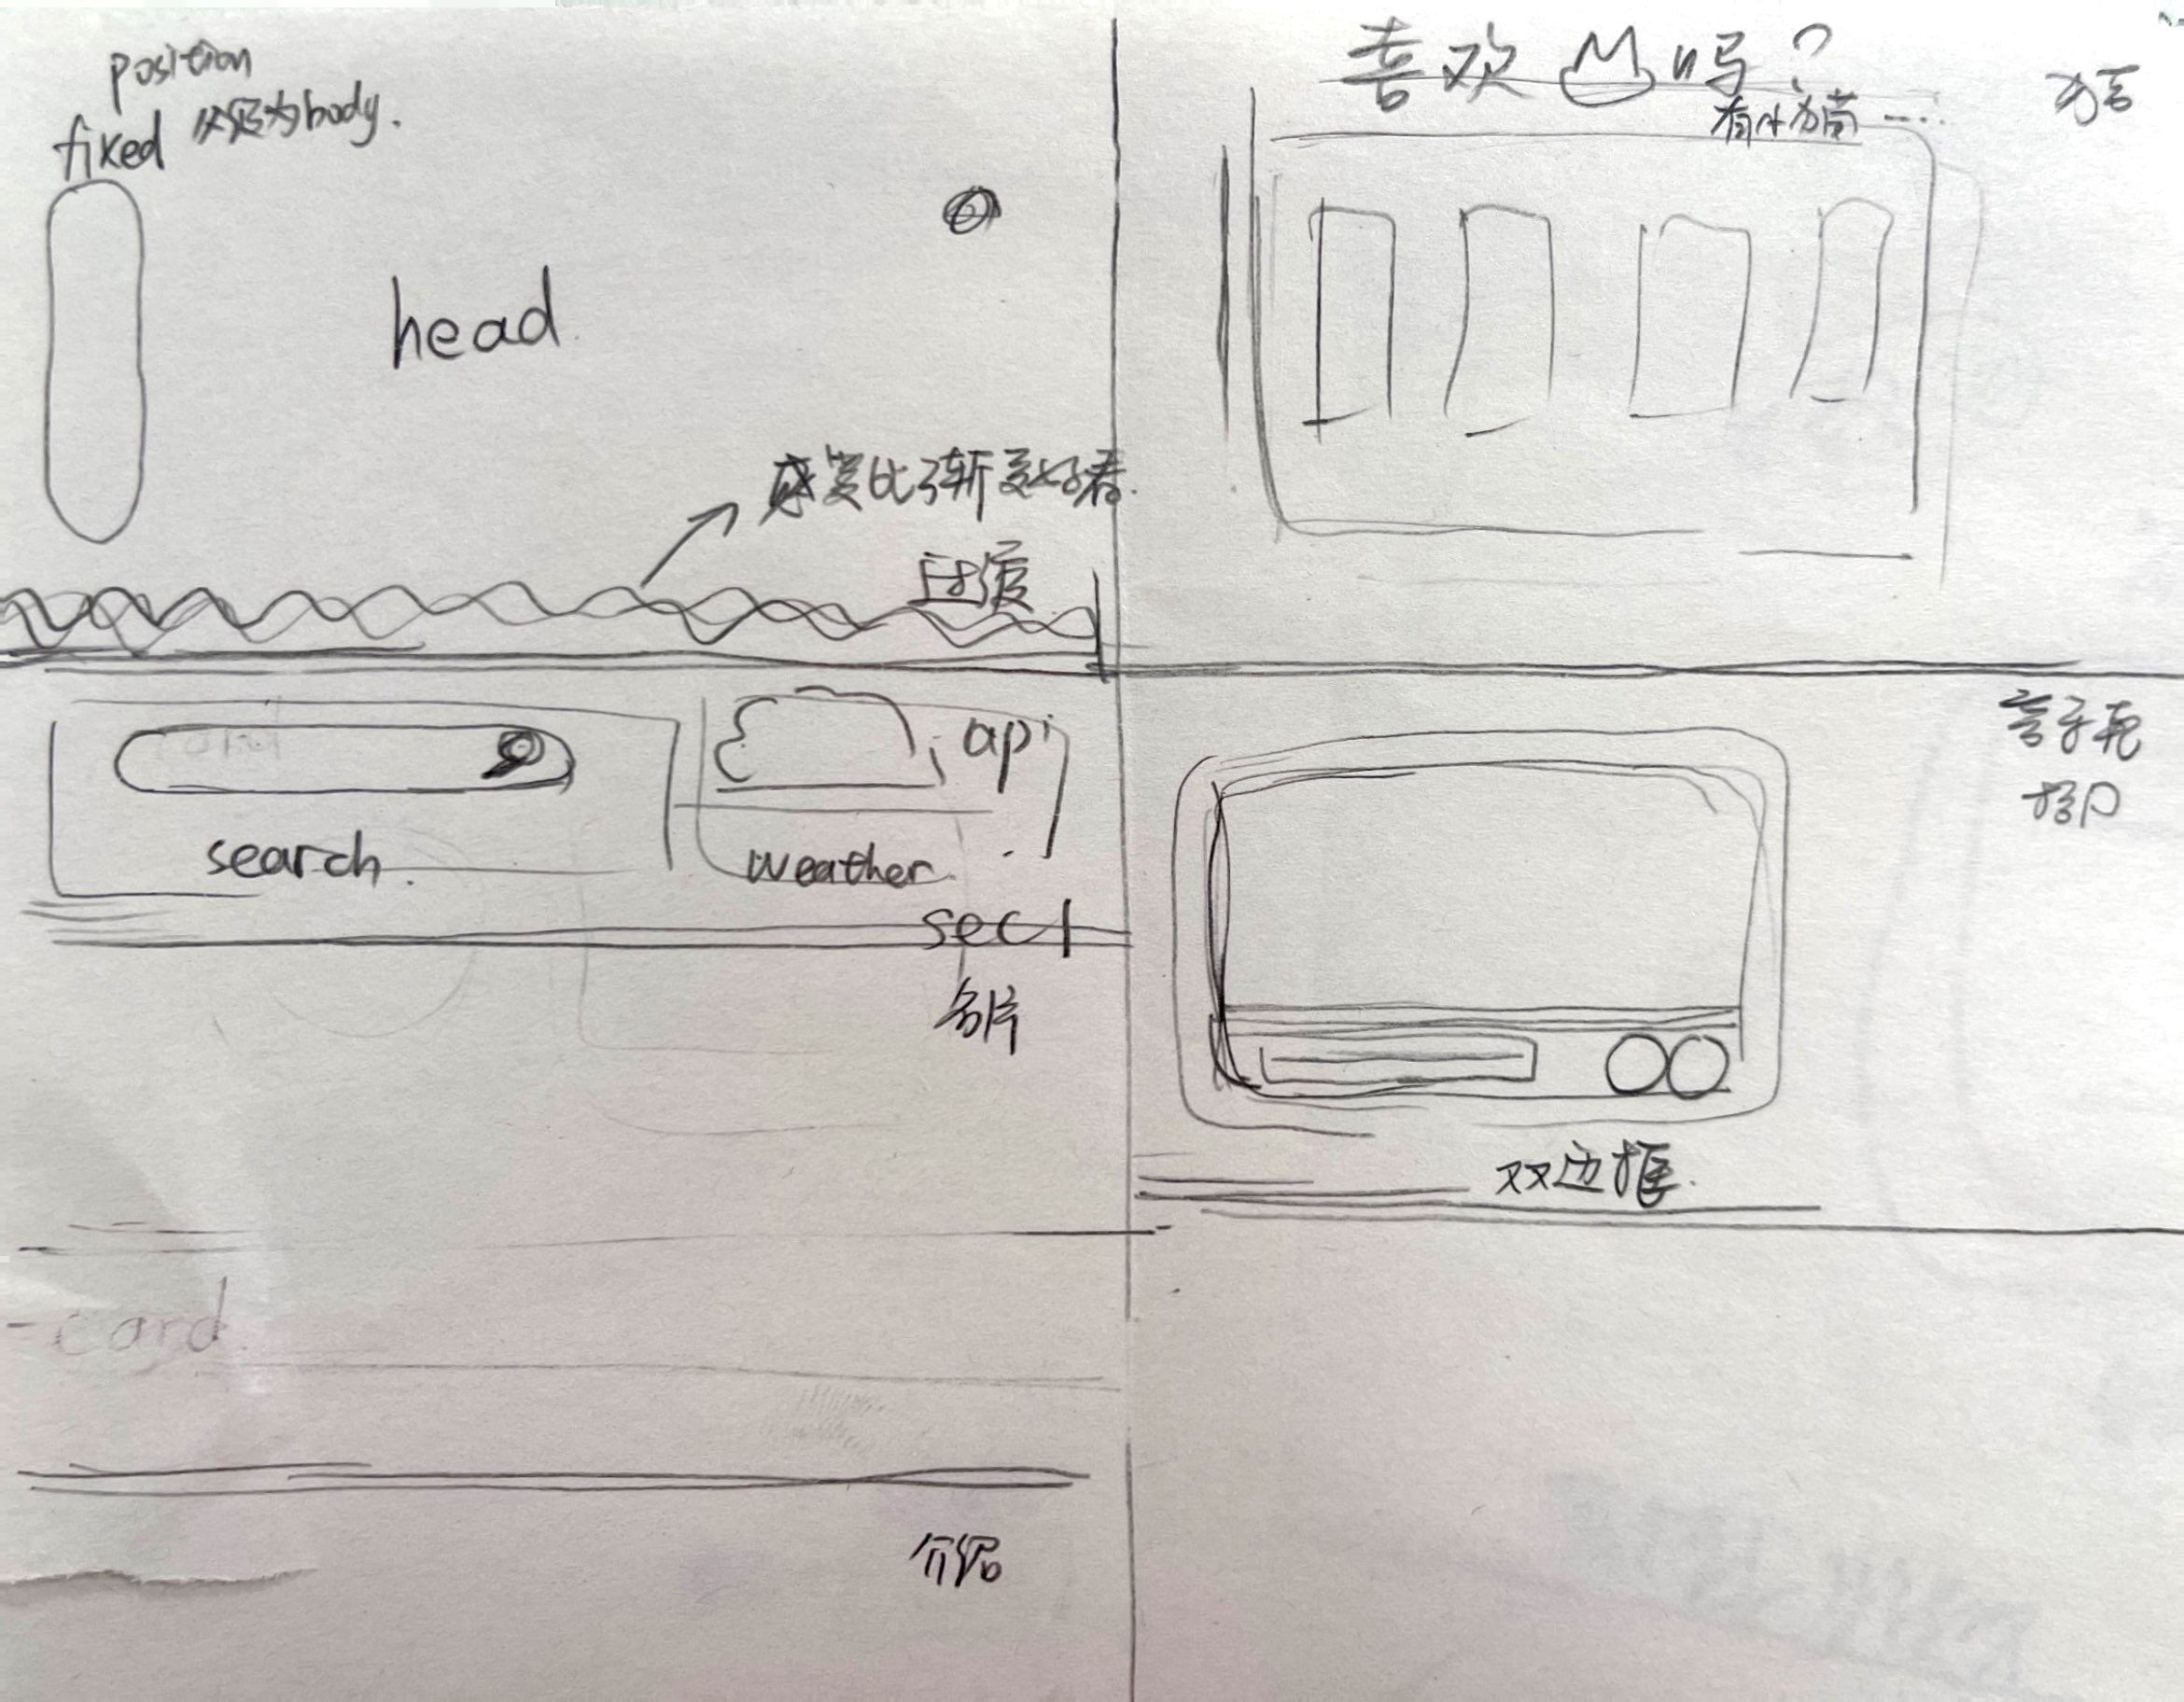 position
fixed 父级为body.
head
感觉比渐变好看.
过渡
search.
api
weather.
sec1
名片
card
介绍
喜欢 吗?
有小方苗 ....
方言
双边框.